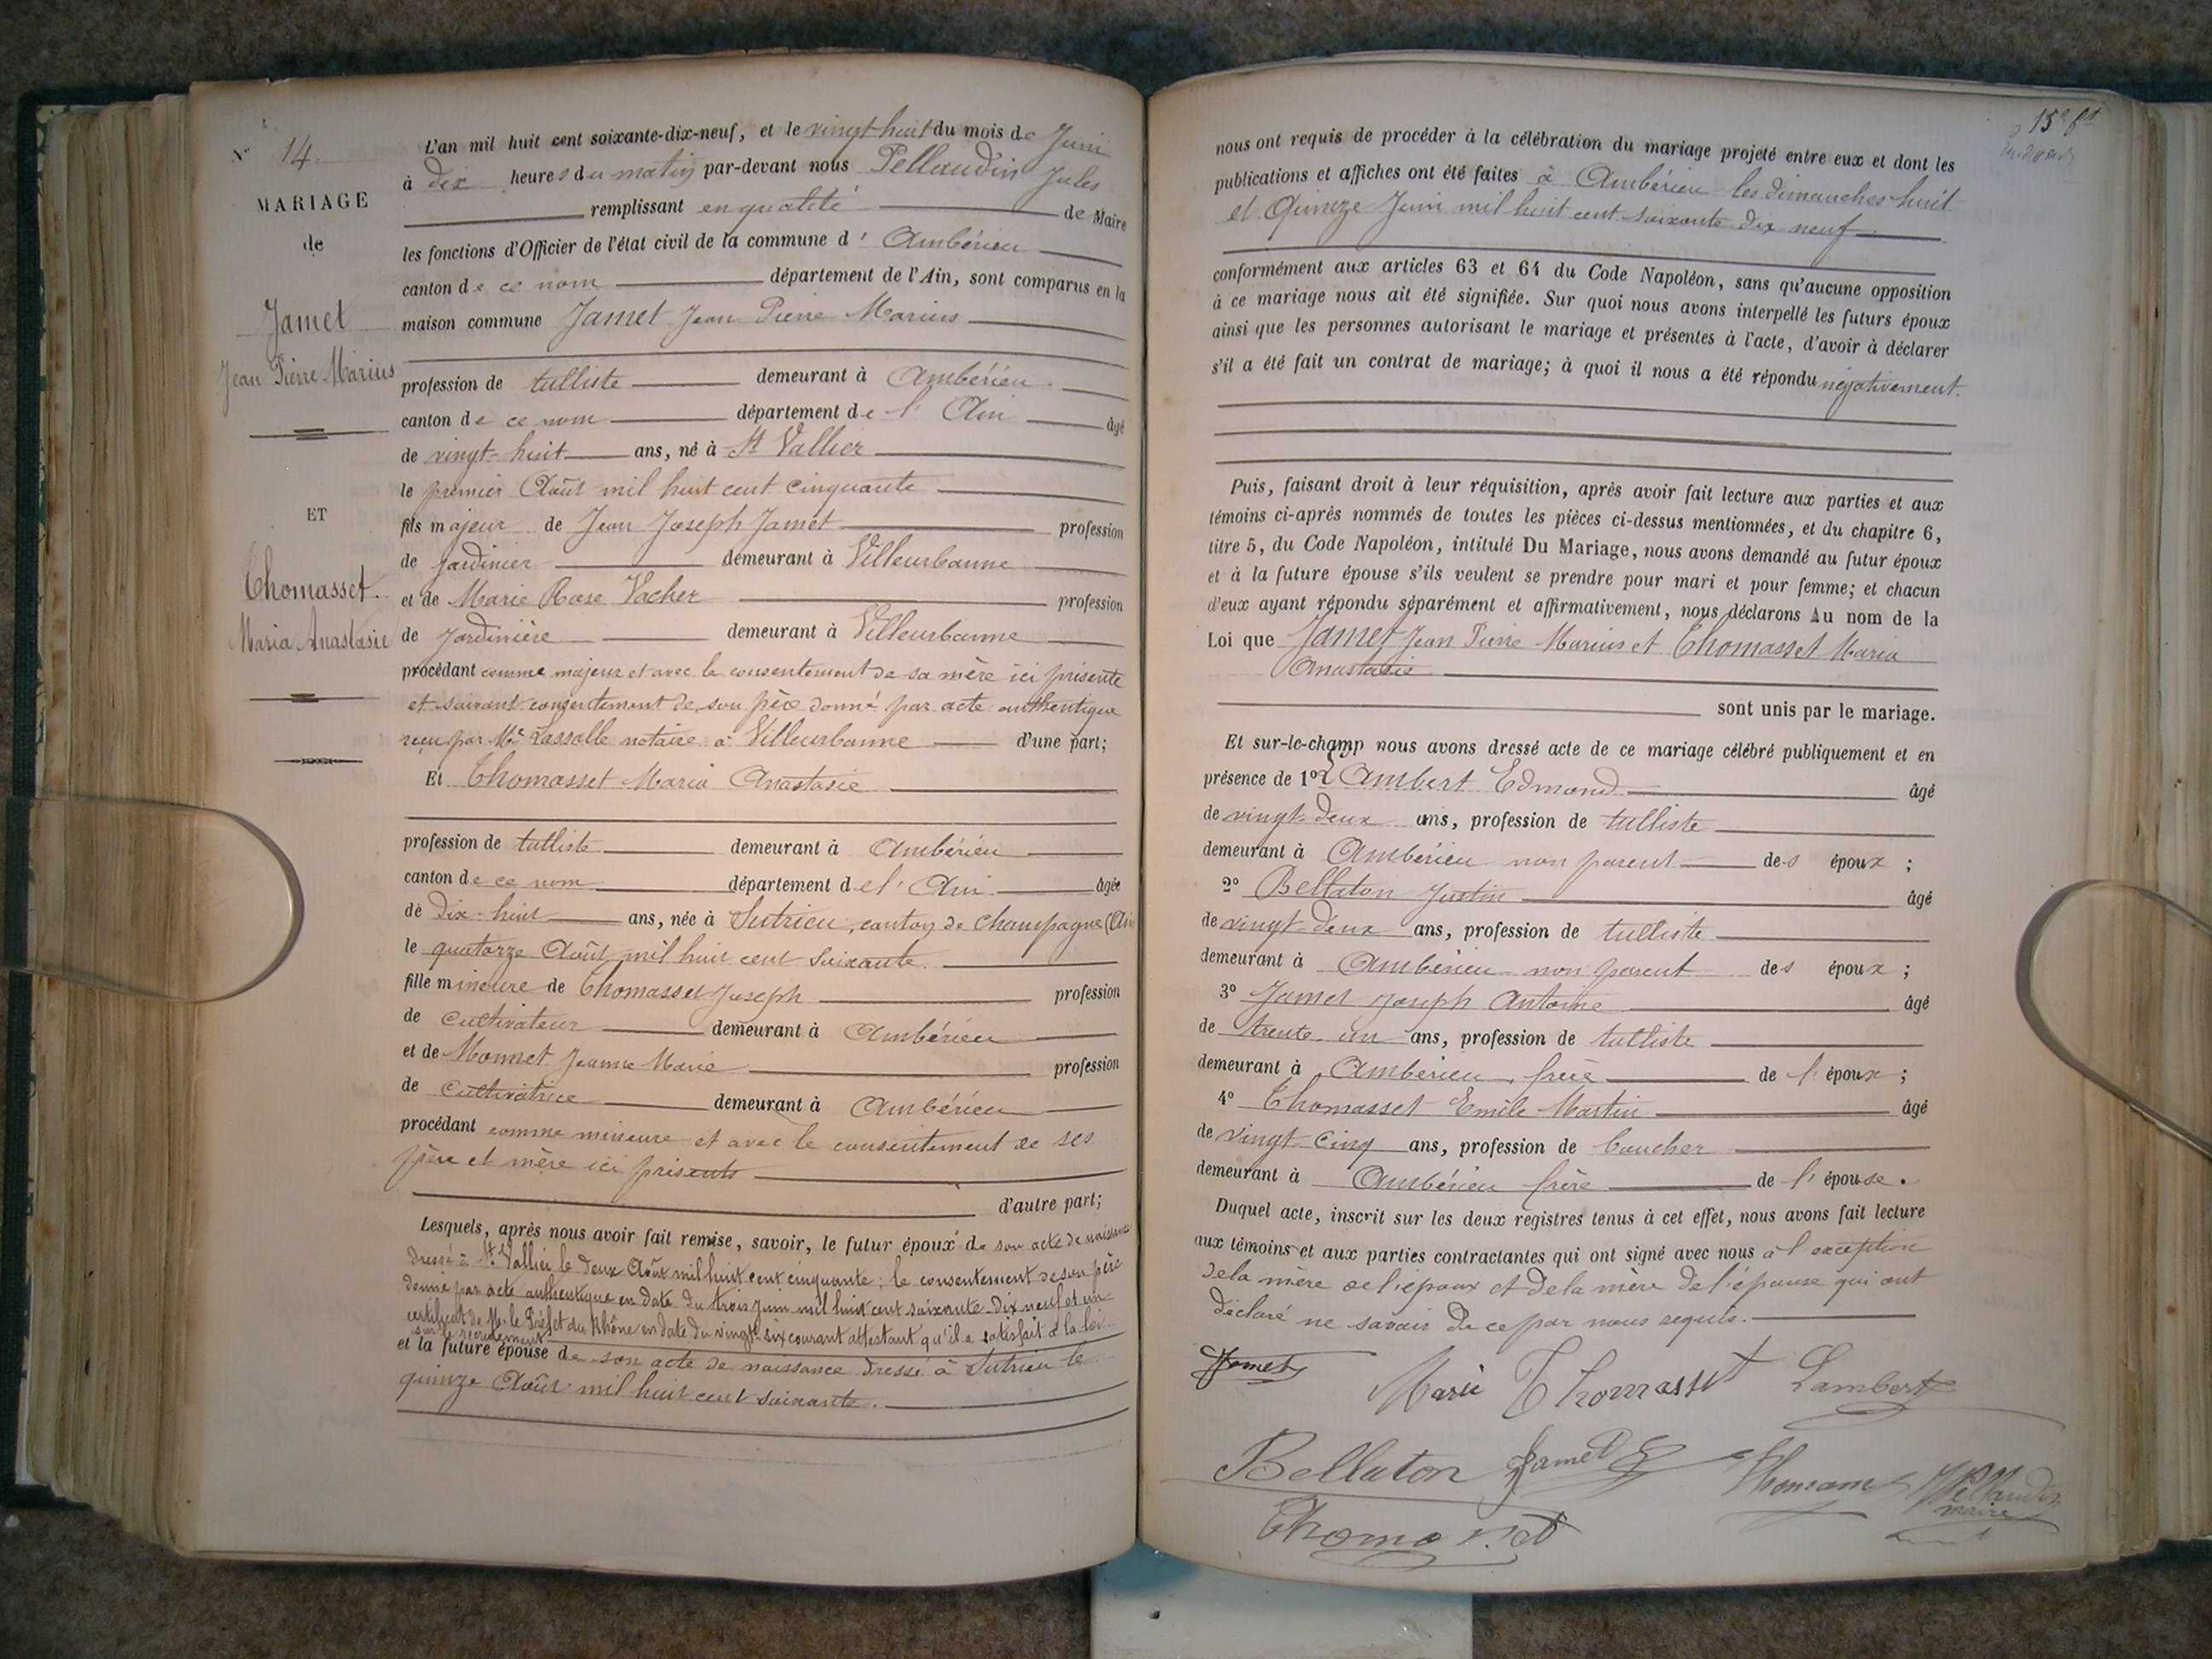 N° 14.
MARIAGE
de
Jamet
Jean Pierre Marius
ET
Thomasset.
Maria Anastasie
L'an mil huit cent soixante-dix-neuf, et le vingt huit du mois de Juin
à dix heures du matin par-devant nous Pellaudin Jules
remplissant en qualité de Maire
les fonctions d'Officier de l'état civil de la commune d' Ambérieu
canton de ce nom département de l'Ain, sont comparus en la
maison commune Jamet Jean Pierre Marius
profession de tulliste demeurant à Ambérieu
canton de ce nom département de l' Ain âgé
de vingt-huit ans, né à St Vallier
le premier Août mil huit cent cinquante
fils majeur de Jean Joseph Jamet profession
de jardinier demeurant à Villeurbanne
et de Marie Rose Vacher profession
de jardinière demeurant à Villeurbanne
procédant comme majeur et avec le consentement de sa mère ici présente
et suivant consentement de son père donné par acte authentique
reçu par Me Lassalle notaire à Villeurbanne d'une part;
Et Thomasset Maria Anastasie
profession de tulliste demeurant à Ambérieu
canton de ce nom département de l' Ain âgée
de dix-huit ans, née à Sutrieu, canton de Champagne (Ain
le quatorze Août mil huit cent soixante
fille mineure de Thomasset Joseph profession
de cultivateur demeurant à Ambérieu
et de Monnet Jeanne Marie profession
de cultivatrice demeurant à Ambérieu
procédant comme mineure et avec le consentement de ses
père et mère ici présents
d'autre part;
Lesquels, après nous avoir fait remise, savoir, le futur époux de son acte de naissance
dressé à St Vallier le deux Août mil huit cent cinquante; le consentement de son père
donné par acte authentique en date du trois juin mil huit cent soixante-dix neuf et un
certificat de M. le Préfet du Rhône en date du vingt-six courant attestant qu'il a satisfait à la loi
sur le recrutement
et la future épouse de son acte de naissance dressé à Sutrieu le
quinze Août mil huit cent soixante.
15e ft
nous ont requis de procéder à la célébration du mariage projeté entre eux et dont les
publications et affiches ont été faites à Ambérieu les dimanches huit
et Quinze Juin mil huit cent soixante dix neuf
conformément aux articles 63 et 64 du Code Napoléon, sans qu'aucune opposition
à ce mariage nous ait été signifiée. Sur quoi nous avons interpellé les futurs époux
ainsi que les personnes autorisant le mariage et présentes à l'acte, d'avoir à déclarer
s'il a été fait un contrat de mariage; à quoi il nous a été répondu négativement.
Puis, faisant droit à leur réquisition, après avoir fait lecture aux parties et aux
témoins ci-après nommés de toutes les pièces ci-dessus mentionnées, et du chapitre 6,
titre 5, du Code Napoléon, intitulé Du Mariage, nous avons demandé au futur époux
et à la future épouse s'ils veulent se prendre pour mari et pour femme; et chacun
d'eux ayant répondu séparément et affirmativement, nous déclarons Au nom de la
Loi que Jamet Jean Pierre Marius et Thomasset Maria
Anastasie
sont unis par le mariage.
Et sur-le-champ nous avons dressé acte de ce mariage célébré publiquement et en
présence de 1° Lambert Edmond âgé
de vingt-deux ans, profession de tulliste
demeurant à Ambérieu non parent des époux ;
2° Bellaton Justin âgé
de vingt-deux ans, profession de tulliste
demeurant à Ambérieu non parent des époux ;
3° Jamet Joseph Antoine âgé
de trente un ans, profession de tulliste
demeurant à Ambérieu, frère de l' époux ;
4° Thomasset Emile Martin âgé
de vingt cinq ans, profession de boucher
demeurant à Ambérieu frère de l' épouse.
Duquel acte, inscrit sur les deux registres tenus à cet effet, nous avons fait lecture
aux témoins et aux parties contractantes qui ont signé avec nous à l'exception
de la mère de l'époux et de la mère de l'épouse qui ont
déclaré ne savoir de ce par nous requis.
Jamet Marie Thomasset Lambert
Bellaton Jamet Thomasset JPellaudin
maire
Thomasset